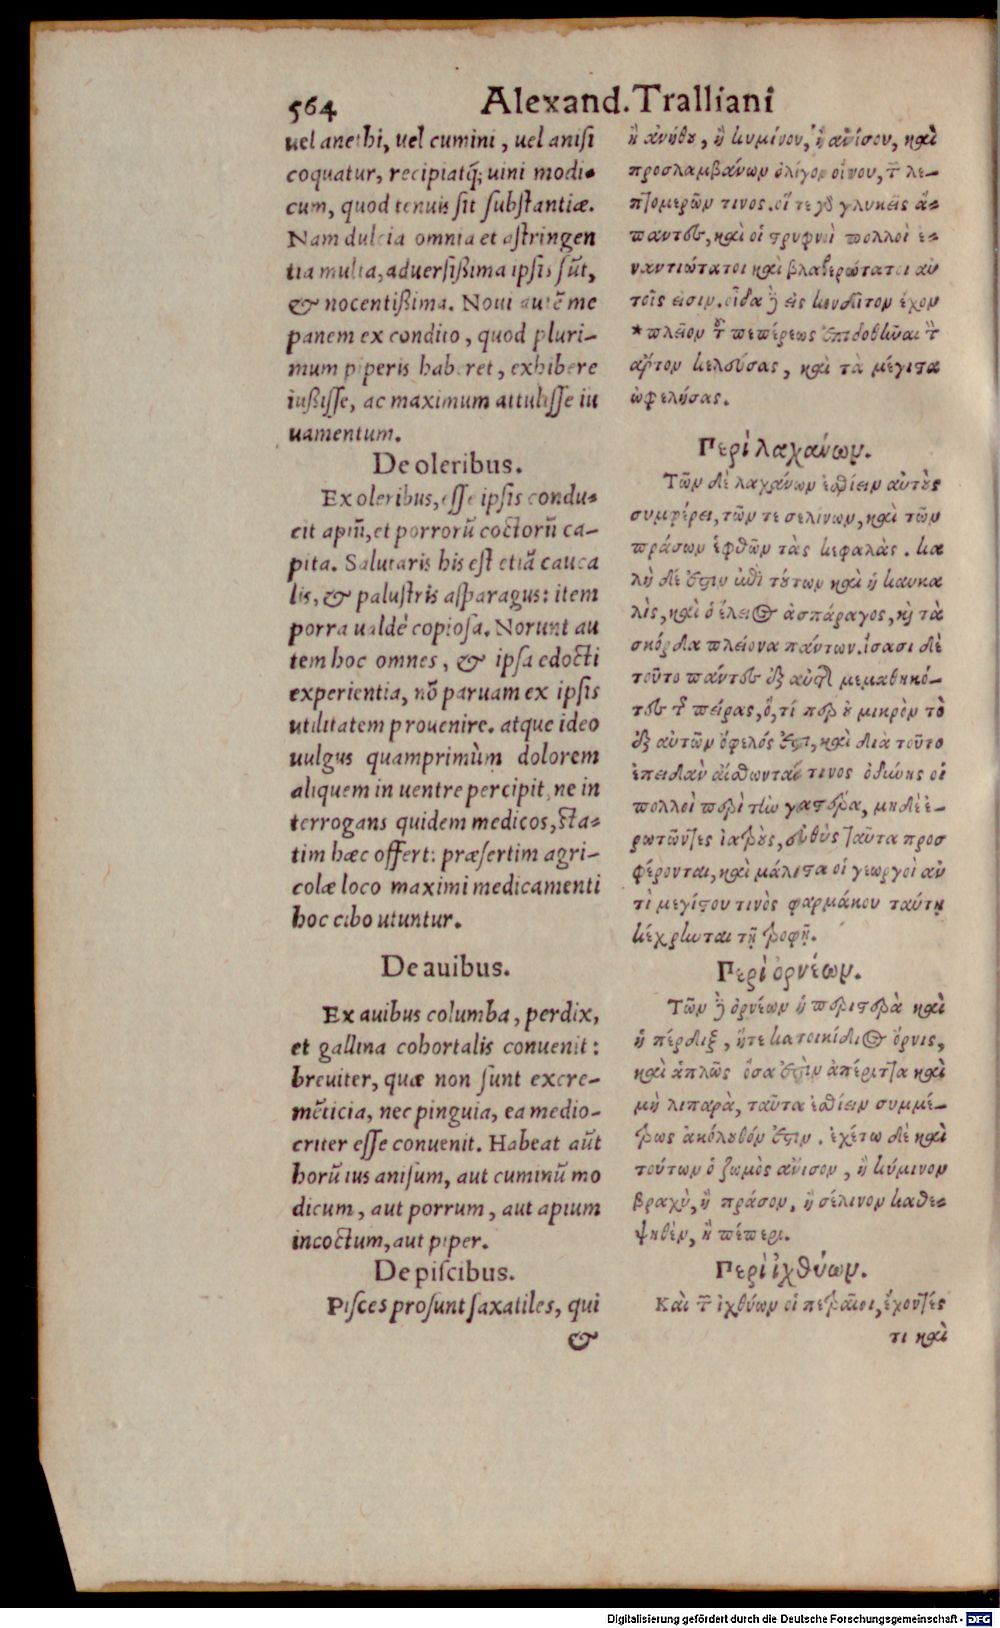 564 Alexand. Tralliani
uel anethi, uel cumini, uel anisi
coquatur, recipiatq́; uini modi-
cum, quod tenuis sit substantiæ.
Nam dulcia omnia et astringen
tia multa, aduersißima ipsis sūt,
& nocentißima. Noui autē me
panem ex condito, quod pluri-
mum piperis haberet, exhibere
iußisse, ac maximum attulisse iu
uamentum.
De oleribus.
Ex oleribus, esse ipsis condu-
cit apiū, et porrorū coctorū ca-
pita. Salutaris his est etiā cauca
lis, & palustris asparagus: item
porra ualdè copiosa. Norunt au
tem hoc omnes, & ipsa edocti
experientia, nō paruam ex ipsis
utilitatem prouenire. atque ideo
uulgus quamprimùm dolorem
aliquem in uentre percipit, ne in
terrogans quidem medicos, sta-
tim hæc offert: præsertim agri-
colæ loco maximi medicamenti
hoc cibo utuntur.
De auibus.
Ex auibus columba, perdix,
et gallina cohortalis conuenit:
breuiter, quæ non sunt excre-
mēticia, nec pinguia, ea medio-
criter esse conuenit. Habeat aūt
horū ius anisum, aut cuminū mo
dicum, aut porrum, aut apium
incoctum, aut piper.
De piscibus.
Pisces prosunt saxatiles, qui
&
ἢ ἀνήθου, ἢ κυμίνου, ἢ ἀνίσου, καὶ
προσλαμβάνων ὀλίγον οἴνου, τῶν λε-
πτομερῶν τινος. οἵ τε γὰρ γλυκεῖς ἅ-
παντες, καὶ οἱ στρυφνοὶ πολλοὶ ἐ-
ναντιώτατοι καὶ βλαβερώτατοι αὐ
τοῖς εἰσιν. οἶδα δὲ εἰς κονδῖτον ἔχον
*πλεῖον τοῦ πεπέρεως ἐπιδοθῆναι τὸν
ἄρτον κελεύσας, καὶ τὰ μέγιστα
ὠφελήσας.
Περὶ λαχάνων.
Τῶν δὲ λαχάνων ἐσθίειν αὐτοὺς
συμφέρει, τῶν τε σελίνων, καὶ τῶν
πράσων ἑφθῶν τὰς κεφαλάς. κα
λὴ δέ ἐστιν ἐπὶ τούτων καὶ ἡ καυκα
λὶς, καὶ ὁ ἕλειος ἀσπάραγος, καὶ τὰ
σκόρδα πλείονα πάντων. ἴσασι δὲ
τοῦτο πάντες ἐξ αὐτῆς μεμαθηκό-
τες τῆς πείρας, ὅ, τί περ οὐ μικρὸν τὸ
ἐξ αὐτῶν ὄφελός ἐστι, καὶ διὰ τοῦτο
ἐπειδὰν αἴσθωνταί τινος ὀδύνης οἱ
πολλοὶ περὶ τὴν γαστέρα, μηδὲ ἐ-
ρωτῶντες ἰατροὺς, εὐθὺς ταῦτα προσ
φέρονται, καὶ μάλιστα οἱ γεωργοὶ ἀν
τὶ μεγίστου τινὸς φαρμάκου ταύτῃ
κέχρηνται τῇ τροφῇ.
Περὶ ὀρνέων.
Τῶν δὲ ὀρνέων ἡ περιστερὰ καὶ
ἡ πέρδιξ, ἥτε κατοικίδιος ὄρνις,
καὶ ἁπλῶς ὅσα ἐστὶν ἀπέριττα καὶ
μὴ λιπαρὰ, ταῦτα ἐσθίειν συμμέ-
τρως ἀκόλουθόν ἐστιν. ἐχέτω δὲ καὶ
τούτων ὁ ζωμὸς ἄνισον, ἢ κύμινον
βραχὺ, ἢ πράσον, ἢ σέλινον καθε-
ψηθὲν, ἢ πέπερι.
Περὶ ἰχθύων.
Καὶ τῶν ἰχθύων οἱ πετραῖοι, ἔχοντές
τι καὶ
Digitalisierung gefördert durch die Deutsche Forschungsgemeinschaft - DFG